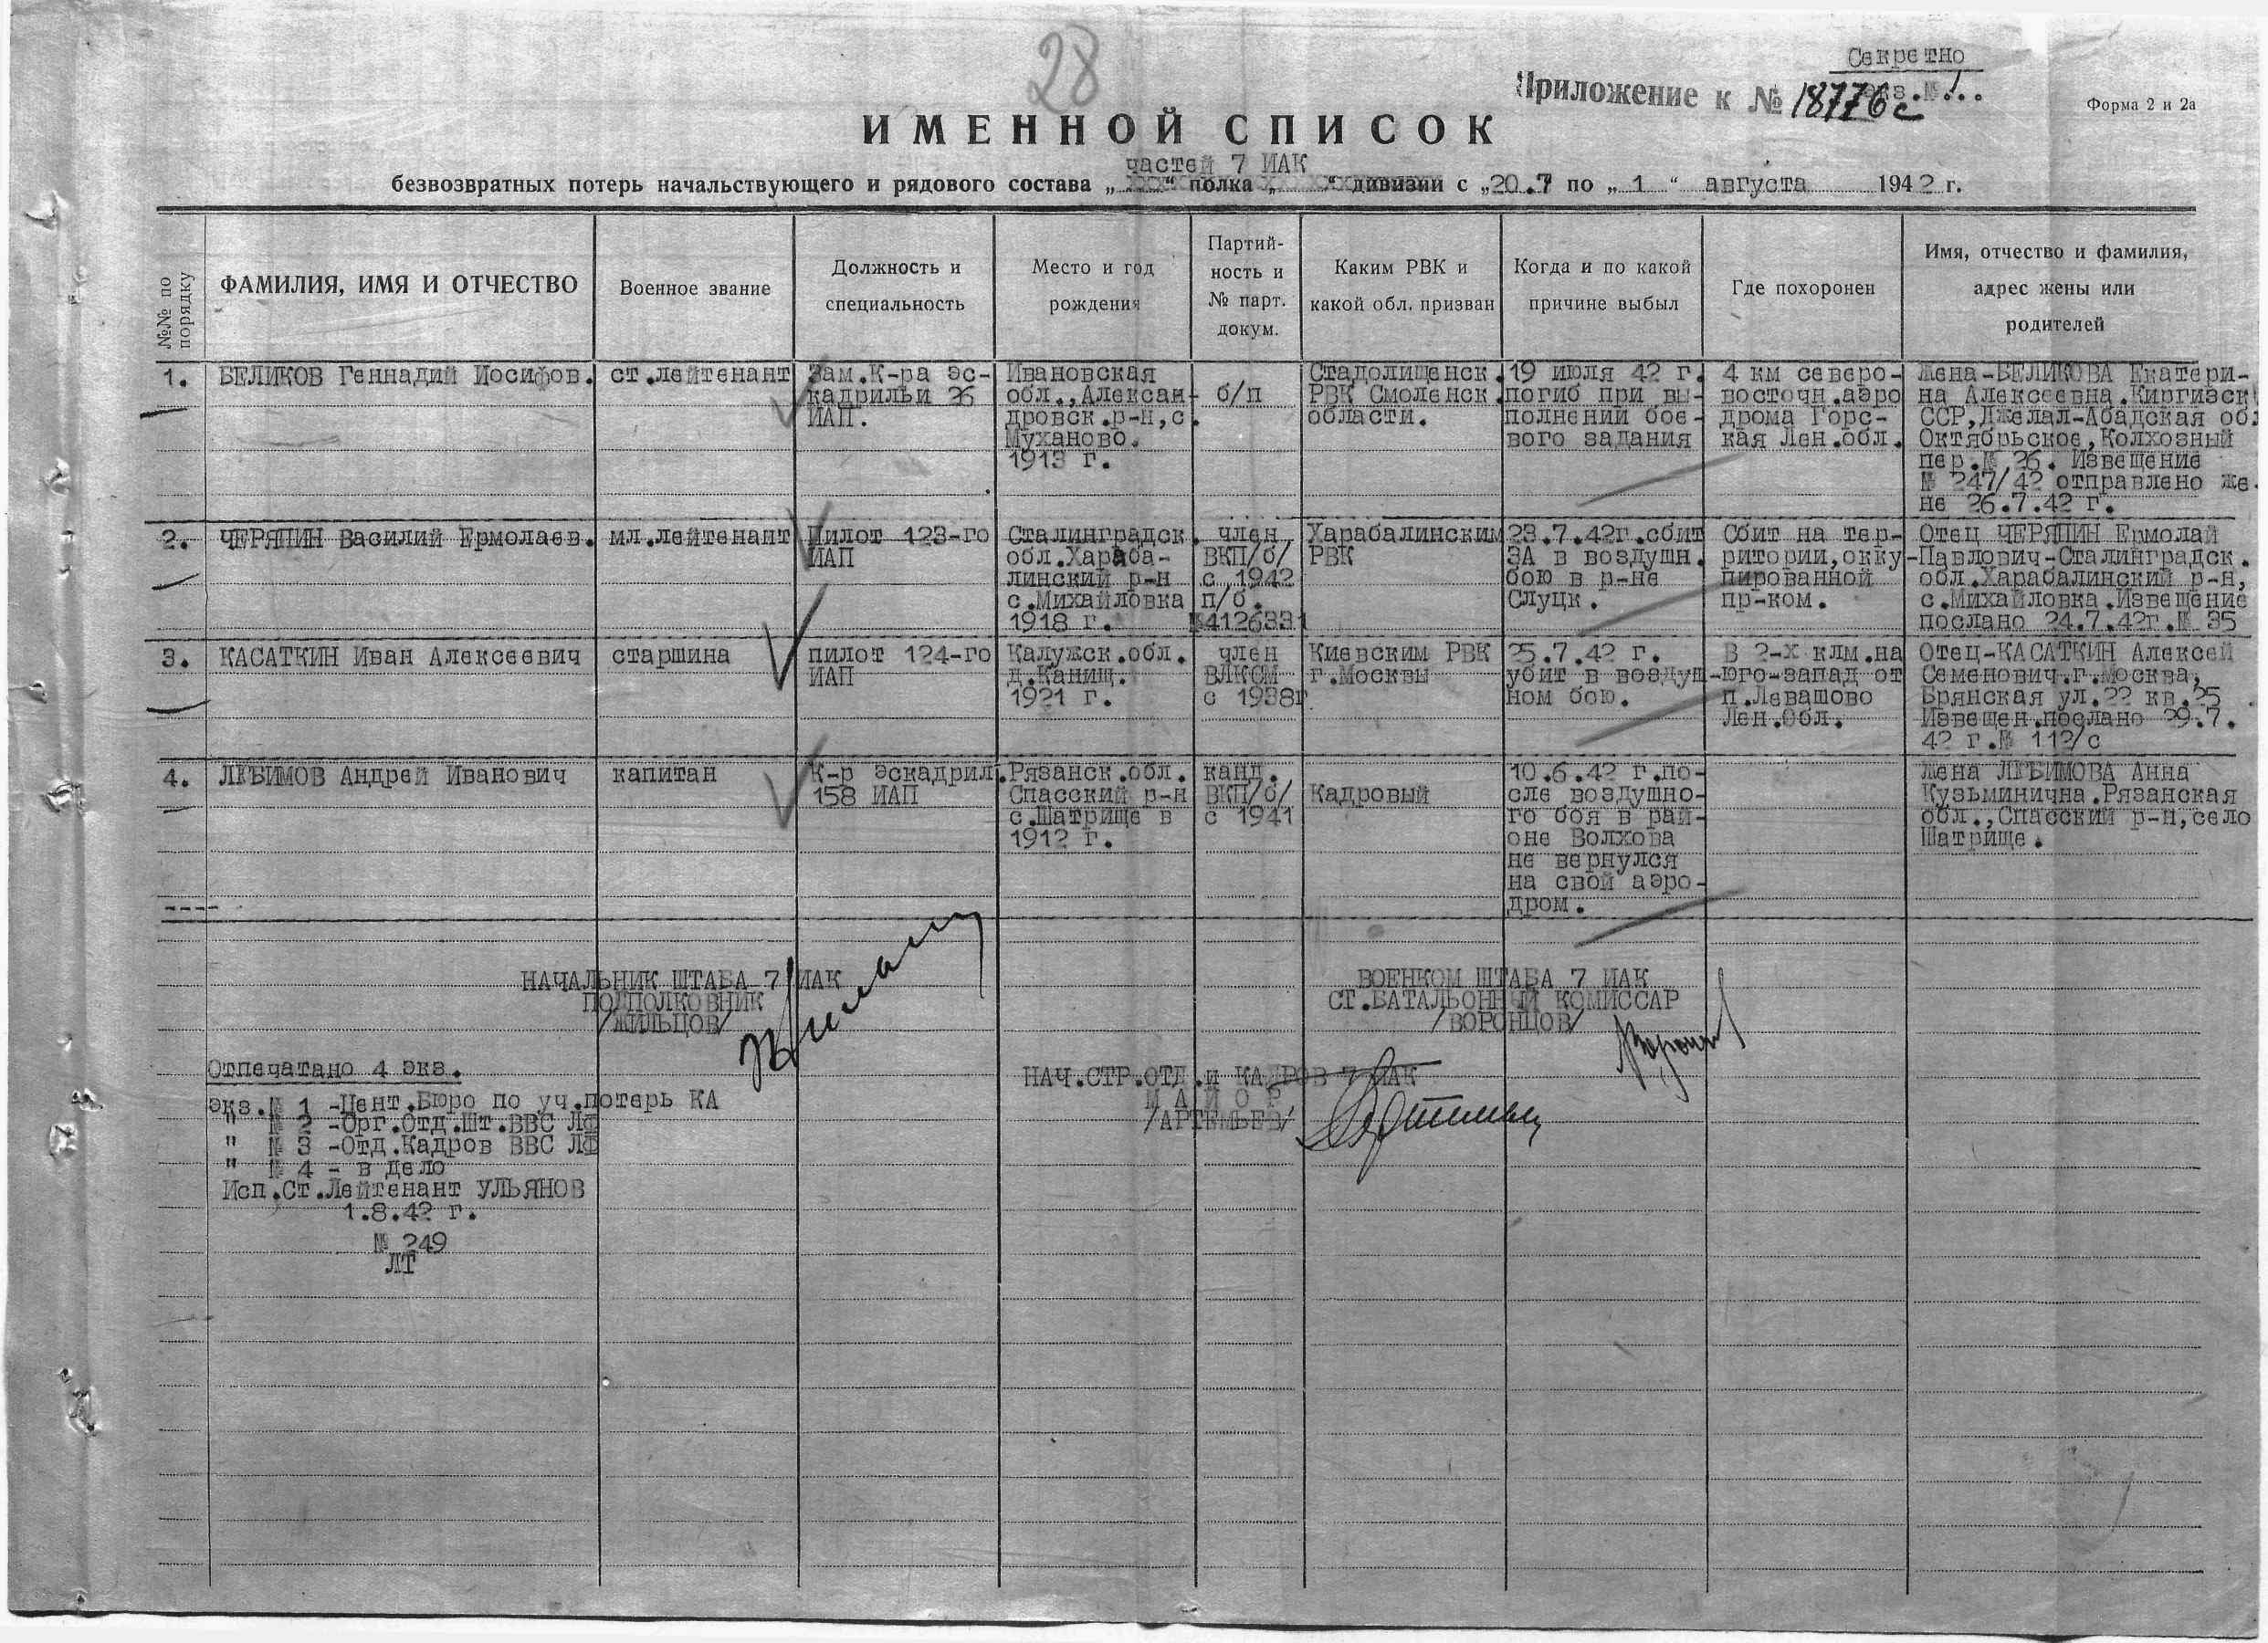 28
Секретно
экз.№ 1.
Приложение к № 18776с
Форма 2 и 2а
ИМЕННОЙ СПИСОК
частей 7 ИАК
безвозвратных потерь начальствующего и рядового состава „ “ полка „ “ дивизии с „20.7 по „ 1 “ августа 1942 г.
№№ по порядку
ФАМИЛИЯ, ИМЯ И ОТЧЕСТВО
Военное звание
Должность и
специальность
Место и год
рождения
Партий-
ность и
№ парт.
докум.
Каким РВК и
какой обл. призван
Когда и по какой
причине выбыл
Где похоронен
Имя, отчество и фамилия,
адрес жены или
родителей
1.
БЕЛИКОВ Геннадий Иосифов.
ст.лейтенант
Зам.К-ра эс-
кадрильи 26
ИАП.
Ивановская
обл.,Алексан-
дровск.р-н,с.
Муханово.
1913 г.
б/п
Стадолищенск.
РВК Смоленск.
области.
19 июля 42 г.
погиб при вы-
полнений бое-
вого задания
4 км северо-
восточн.аэро
дрома Горс-
кая Лен.обл.
Жена-БЕЛИКОВА Екатери-
на Алексеевна.Киргизск
ССР,Джелал-Абадская об.
Октябрьское,Колхозный
пер.№ 26. Извещение
№ 247/42 отправлено же-
не 26.7.42 г.
2.
ЧЕРЯПИН Василий Ермолаев.
мл.лейтенант
Пилот 123-го
ИАП
Сталинградск.
обл.Хараба-
линский р-н
с.Михайловка
1918 г.
член
ВКП/б/
с 1942
п/б.
№4126331
Харабалинским
РВК
23.7.42г.сбит
ЗА в воздушн.
бою в р-не
Слуцк.
Сбит на тер-
ритории,окку-
пированной
пр-ком.
Отец ЧЕРЯПИН Ермолай
Павлович-Сталинградск.
обл.Харабалинский р-н,
с.Михайловка.Извещение
послано 24.7.42г.№ 35
3.
КАСАТКИН Иван Алексеевич
старшина
пилот 124-го
ИАП
Калужск.обл.
д.Канищ.
1921 г.
член
ВЛКСМ
с 1938г
Киевским РВК
г.Москвы
25.7.42 г.
убит в воздуш-
ном бою.
В 2-х клм.на
юго-запад от
п.Левашово
Лен.Обл.
Отец-КАСАТКИН Алексей
Семенович.г.Москва,
Брянская ул.22 кв.25
Извещен.послано 29.7.
42 г.№ 112/с
4.
ЛЮБИМОВ Андрей Иванович
капитан
К-р эскадрил.
158 ИАП
Рязанск.обл.
Спасский р-н
с.Шатрище в
1912 г.
канд.
ВКП/б/
с 1941
Кадровый
10.6.42 г.по-
сле воздушно-
го боя в рай-
оне Волхова
не вернулся
на свой аэро-
дром.
Жена ЛЮБИМОВА Анна
Кузьминична.Рязанская
обл.,Спасский р-н,село
Шатрище.
НАЧАЛЬНИК ШТАБА 7 ИАК
ПОДПОЛКОВНИК
/ЖИЛЬЦОВ/
ВОЕНКОМ ШТАБА 7 ИАК
СТ.БАТАЛЬОННЫЙ КОМИССАР
/ВОРОНЦОВ/
НАЧ.СТР.ОТД.и КАДРОВ 7 ИАК
М А Й О Р
/АРТЕМЬЕВ/
Отпечатано 4 экз.
экз.№ 1 -Цент.Бюро по уч.потерь КА
" № 2 -Орг.Отд.Шт.ВВС ЛФ
" № 3 -Отд.Кадров ВВС ЛФ
" № 4 - в дело
Исп.Ст.Лейтенант УЛЬЯНОВ
1.8.42 г.
№ 249
ЛТ